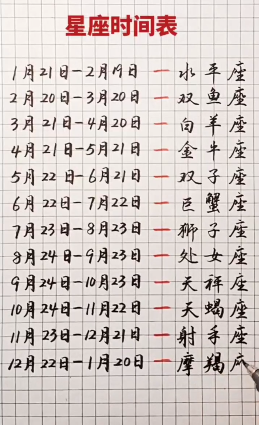 星座时间表
1月21日-2月19日 — 水平座
2月20日-3月20日 — 双鱼座
3月21日-4月20日 — 白羊座
4月21日-5月21日 — 金牛座
5月22日-6月21日 — 双子座
6月22日-7月22日 — 巨蟹座
7月23日-8月23日 — 狮子座
8月24日-9月23日 — 处女座
9月24日-10月23日 — 天祥座
10月24日-11月22日 — 天蝎座
11月23日-12月21日 — 射手座
12月22日-1月20日 — 摩羯